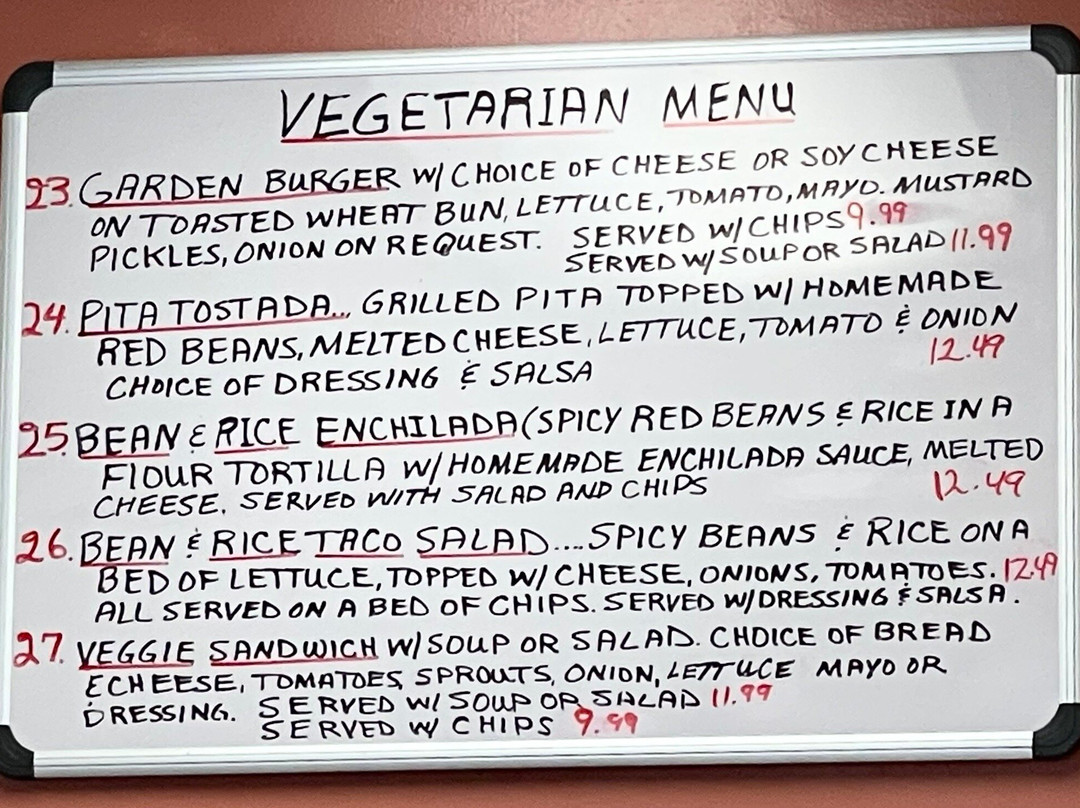 VEGETARIAN MENU
23. GARDEN BURGER W/ CHOICE OF CHEESE OR SOY CHEESE
ON TOASTED WHEAT BUN, LETTUCE, TOMATO, MAYO. MUSTARD
PICKLES, ONION ON REQUEST. SERVED W/ CHIPS 9.99
SERVED W/ SOUP OR SALAD 11.99
24. PITA TOSTADA... GRILLED PITA TOPPED W/ HOMEMADE
RED BEANS, MELTED CHEESE, LETTUCE, TOMATO & ONION
CHOICE OF DRESSING & SALSA 12.49
25. BEAN & RICE ENCHILADA (SPICY RED BEANS & RICE IN A
FLOUR TORTILLA W/ HOMEMADE ENCHILADA SAUCE, MELTED
CHEESE. SERVED WITH SALAD AND CHIPS 12.49
26. BEAN & RICE TACO SALAD.... SPICY BEANS & RICE ON A
BED OF LETTUCE, TOPPED W/ CHEESE, ONIONS, TOMATOES. 12.49
ALL SERVED ON A BED OF CHIPS. SERVED W/ DRESSING & SALSA.
27. VEGGIE SANDWICH W/ SOUP OR SALAD. CHOICE OF BREAD
& CHEESE, TOMATOES, SPROUTS, ONION, LETTUCE MAYO OR
DRESSING. SERVED W/ SOUP OR SALAD 11.99
SERVED W/ CHIPS 9.99